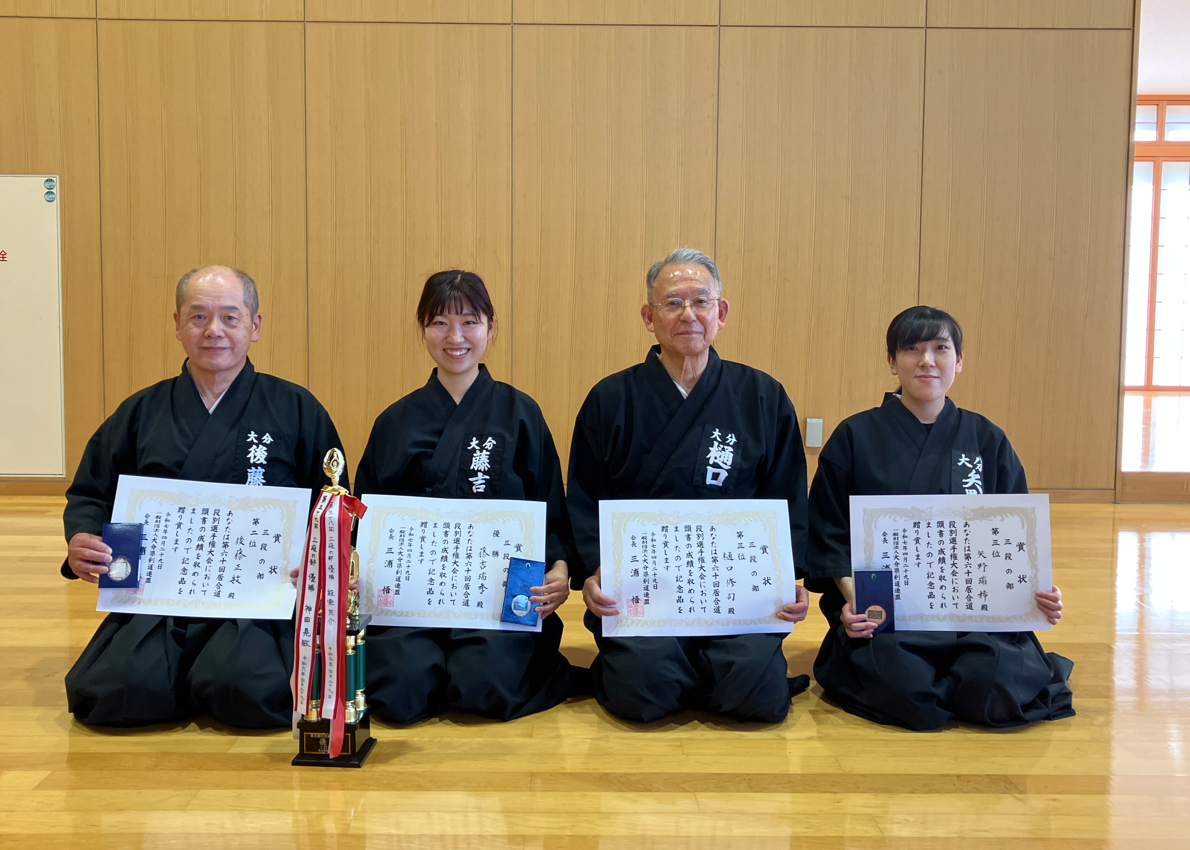 栓
大分
後藤
大分
藤吉
大分
樋口
大分
賞状
三段の部
第二位
後藤正敏 殿
あなたは第六十回居合道
段別選手権大会において
頭書の成績を収められ
ましたので記念品を
贈り賞します
令和七年四月二十九日
一般財団法人大分県剣道連盟
会長 三浦
三段の部 優勝
神田晃敏
三段の部 優勝
賞状
三段の部
優勝
殿
あなたは第六十回居合道
段別選手権大会において
頭書の成績を収められ
ましたので記念品を
贈り賞します
令和七年四月二十九日
一般財団法人大分県剣道連盟
会長 三浦 悟
賞状
三段の部
第三位
樋口修司 殿
あなたは第六十回居合道
段別選手権大会において
頭書の成績を収められ
ましたので記念品を
贈り賞します
令和七年四月二十九日
一般財団法人大分県剣道連盟
会長 三浦 悟
賞状
三段の部
第三位
矢野瑞 殿
あなたは第六十回居合道
段別選手権大会において
頭書の成績を収められ
ましたので記念品を
贈り賞します
令和七年四月二十九日
一般財団法人大分県剣道連盟
会長 三浦